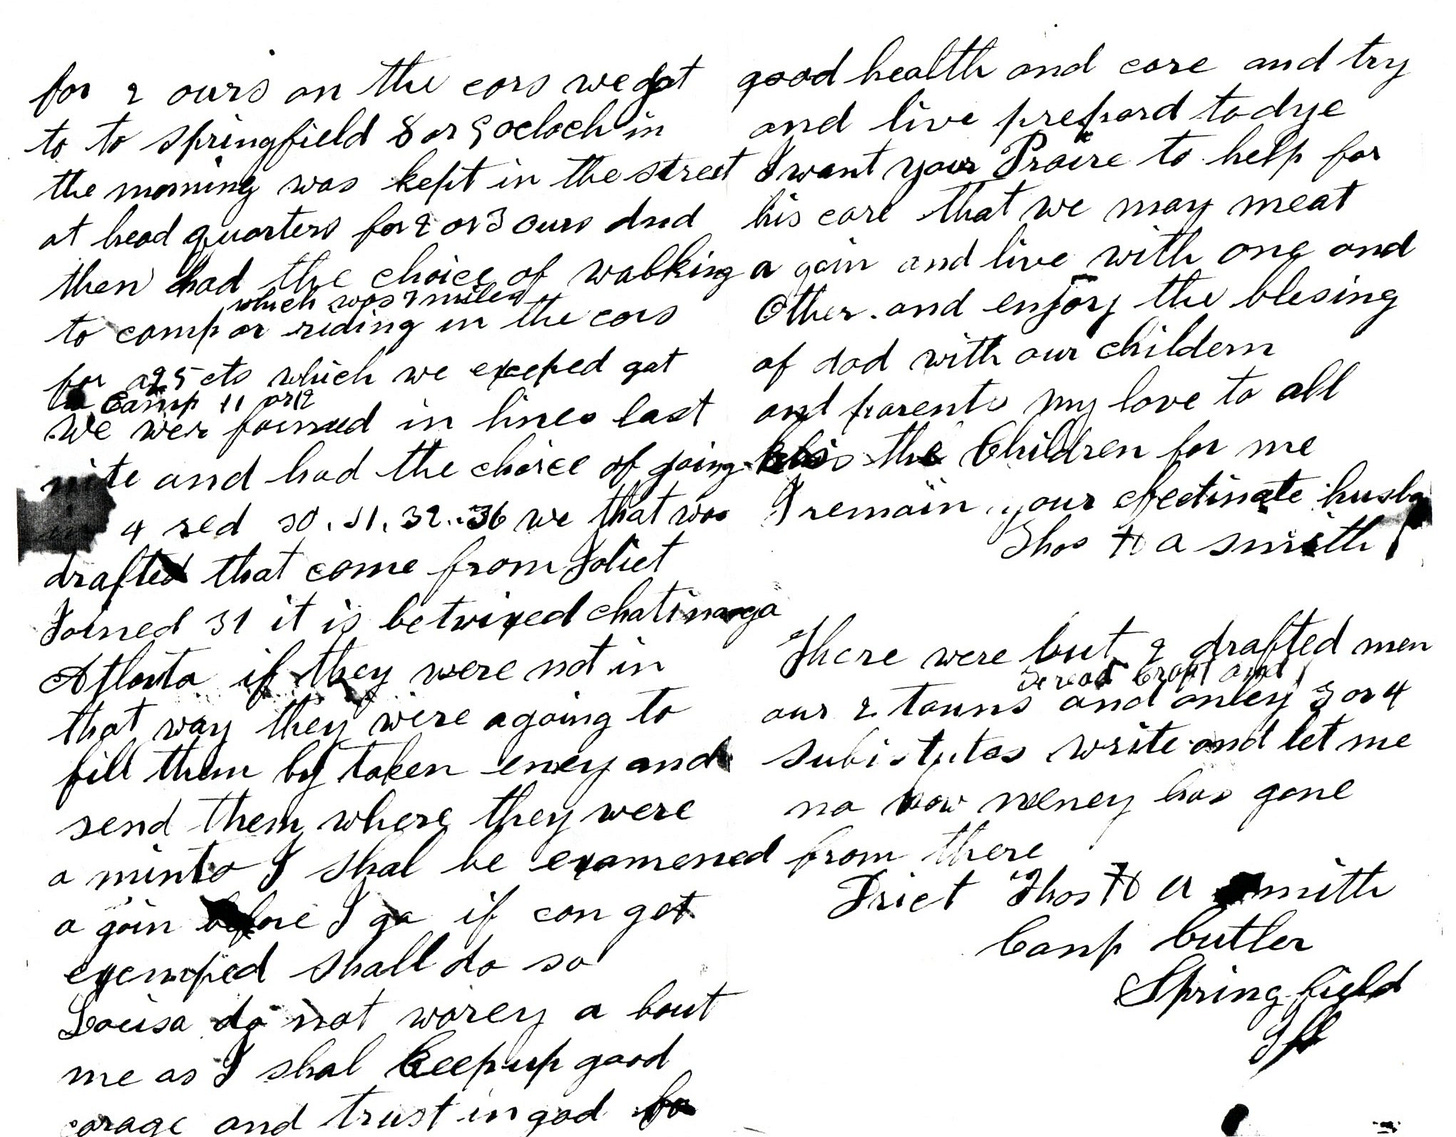 for 2 ours on the cars we got
to to springfield 8 or 9 ocloch in
the morning was kept in the street
at head quarters for 2 or 3 ours and
then had the choice of walking
which was 7 miles
to camp or riding in the cars
for 25 cts which we exceped got
to Camp 11 or 12
we wer formed in lines last
nite and had the choice of going
in 4 red 30. 31. 32. 36 we that was
drafted that come from Joliet
Joined 31 it is betwixed chatinooga
Atlanta if they were not in
that way they were agoing to
fill them by taken eney and
send them where they were
a minto I shal be examened
a gain before I go if can get
exemped shall do so
Louisa do not worey a bout
me as I shal keep up good
corage and trust in god for
good health and care and try
and live prepard to dye
I want your Praire to help for
his care that we may meat
a gain and live with one and
Other. and enjoy the blesing
of dod with our childern
and parents my love to all
kiss the Children for me
I remain your efectinate husba
Thos H a smith
There were but 2 drafted men
our 2 touns and onley 3 or 4
subistutes write and let me
no how meney has gone
from there
Drict Thos H a Smith
Camp butler
Springfield
Ill